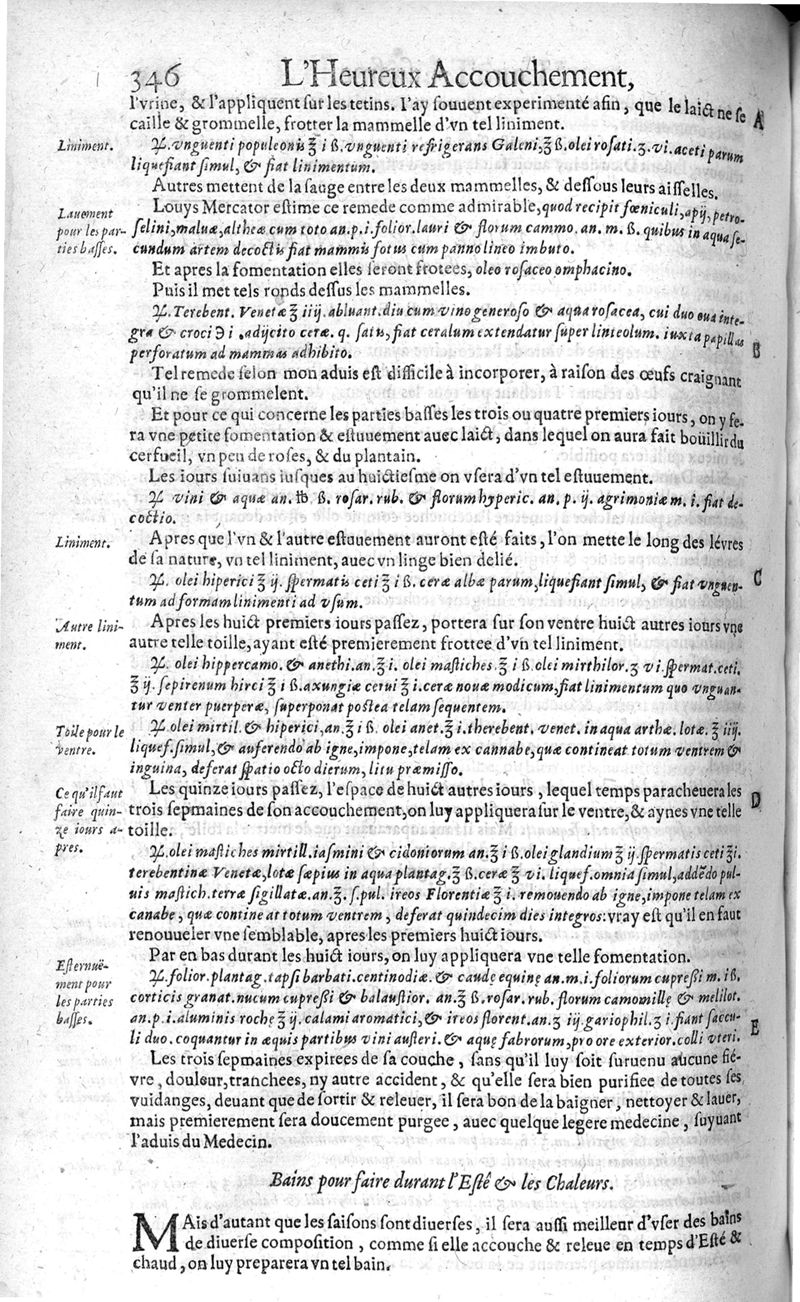 346 L'Heureux Accouchement,
l'vrine, & l'appliquent sur les tetins. I'ay souuent experimenté afin, que le laict ne se A
caille & grommelle, frotter la mammelle d'vn tel liniment.
Liniment. ♃. vnguenti populeonis ℥ i ß. vnguenti refrigerans Galeni, ℥ ß. olei rosati. ʒ. vi. aceti parum
liquefiant simul, & fiat linimentum.
Autres mettent de la sauge entre les deux mammelles, & dessous leurs aisselles.
Lauement pour les parties basses. Louys Mercator estime ce remede comme admirable, quod recipit fœniculi, apij, petro-
selini, maluæ, altheæ cum toto an. p. i. folior. lauri & florum cammo. an. m. ß. quibus in aqua se-
cundum artem decoctis fiat mammis fotus cum panno lineo imbuto.
Et apres la fomentation elles seront frotees, oleo rosaceo omphacino.
Puis il met tels ronds dessus les mammelles.
♃. Terebent. Venetæ ℥ iiij. abluant. diu cum vino generoso & aqua rosacea, cui duo oua inte-
gra & croci ℈ i. adijcito ceræ. q. satis, fiat ceratum extendatur super linteolum. iuxta papillas B
perforatum ad mammas adhibito.
Tel remede selon mon aduis est difficile à incorporer, à raison des œufs craignant
qu'il ne se grommelent.
Et pour ce qui concerne les parties basses les trois ou quatre premiers iours, on y fe-
ra vne petite fomentation & estuuement auec laict, dans lequel on aura fait boüillir du
cerfueil, vn peu de roses, & du plantain.
Les iours suiuans iusques au huictiesme on vsera d'vn tel estuuement.
♃ vini & aquæ an. ℔ ß. rosar. rub. & florum hyperic. an. p. ij. agrimoniæ m. i. fiat de-
coctio.
Liniment. Apres que l'vn & l'autre estuuement auront esté faits, l'on mette le long des lévres
de sa nature, vn tel liniment, auec vn linge bien delié.
♃. olei hiperici ℥ ij. spermatis ceti ℥ i ß. ceræ albæ parum, liquefiant simul, & fiat vnguen- C
tum ad formam linimenti ad vsum.
Autre liniment. Apres les huict premiers iours passez, portera sur son ventre huict autres iours vne
autre telle toille, ayant esté premierement frottee d'vn tel liniment.
♃. olei hippercamo. & anethi. an. ℥ i. olei mastiches. ℥ i ß. olei mirthilor. ʒ vi. spermat. ceti.
℥ ij. sepirenum hirci ℥ i ß. axungiæ cerui ℥ i. ceræ nouæ modicum, fiat linimentum quo vnguan-
tur venter puerperæ, superponat postea telam sequentem.
Toile pour le ventre. ♃. olei mirtil. & hiperici, an. ℥ i ß olei anet. ℥ i. therebent. venet. in aqua arthæ. lotæ. ℥ iij.
liquef. simul, & auferendo ab igne, impone, telam ex cannabe, quæ contineat totum ventrem &
inguina, deferat spatio octo dierum, litu præmisso.
Ce qu'il faut faire quinze iours apres. Les quinze iours passez, l'espace de huict autres iours, lequel temps paracheuera les D
trois sepmaines de son accouchement, on luy appliquera sur le ventre, & aynes vne telle
toille.
♃. olei mastiches mirtill. iasmini & cidoniorum an. ℥ i ß. olei glandium ℥ ij. spermatis ceti ℥ i.
terebentinæ Venetæ, lotæ sæpius in aqua plantag. ℥ ß. ceræ ℥ vi. liquef. omnia simul, addēdo pul-
uis mastich. terræ sigillatæ. an. ℥. s. pul. ireos Florentiæ ℥ i. remouendo ab igne, impone telam ex
canabe, quæ contineat totum ventrem, deferat quindecim dies integros: vray est qu'il en faut
renouueler vne semblable, apres les premiers huict iours.
Par en bas durant les huict iours, on luy appliquera vne telle fomentation.
Esternuëment pour les parties basses. ♃. folior. plantag. tapsi barbati. centinodiæ. & caudę equinę an. m. i. foliorum cupressi m. i ß.
corticis granat. nucum cupressi & balaustior. an. ℥ ß. rosar. rub. florum camomillę & melilot.
an. p. i. aluminis rochę ℥ ij. calami aromatici, & ireos florent. an. ʒ iij. gariophil. ʒ i. fiant saccu- E
li duo. coquantur in æquis partibus vini austeri. & aquę fabrorum, pro ore exterior. colli vteri.
Les trois sepmaines expirees de sa couche, sans qu'il luy soit suruenu aucune fié-
vre, douleur, tranchees, ny autre accident, & qu'elle sera bien purifiee de toutes ses
vuidanges, deuant que de sortir & releuer, il sera bon de la baigner, nettoyer & lauer,
mais premierement sera doucement purgee, auec quelque legere medecine, suyuant
l'aduis du Medecin.
Bains pour faire durant l'Esté & les Chaleurs.
MAis d'autant que les saisons sont diuerses, il sera aussi meilleur d'vser des bains
de diuerse composition, comme si elle accouche & releue en temps d'Esté &
chaud, on luy preparera vn tel bain.